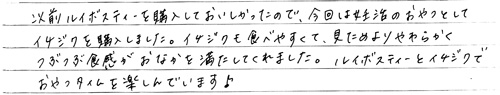 以前ルイボスティーを購入しておいしかったので、今回は妊活のおやつとして
イチジクを購入しました。イチジクも食べやすくて、見ためよりやわらかく
つぶつぶ食感がおなかを満たしてくれました。ルイボスティーとイチジクで
おやつタイムを楽しんでいます♪